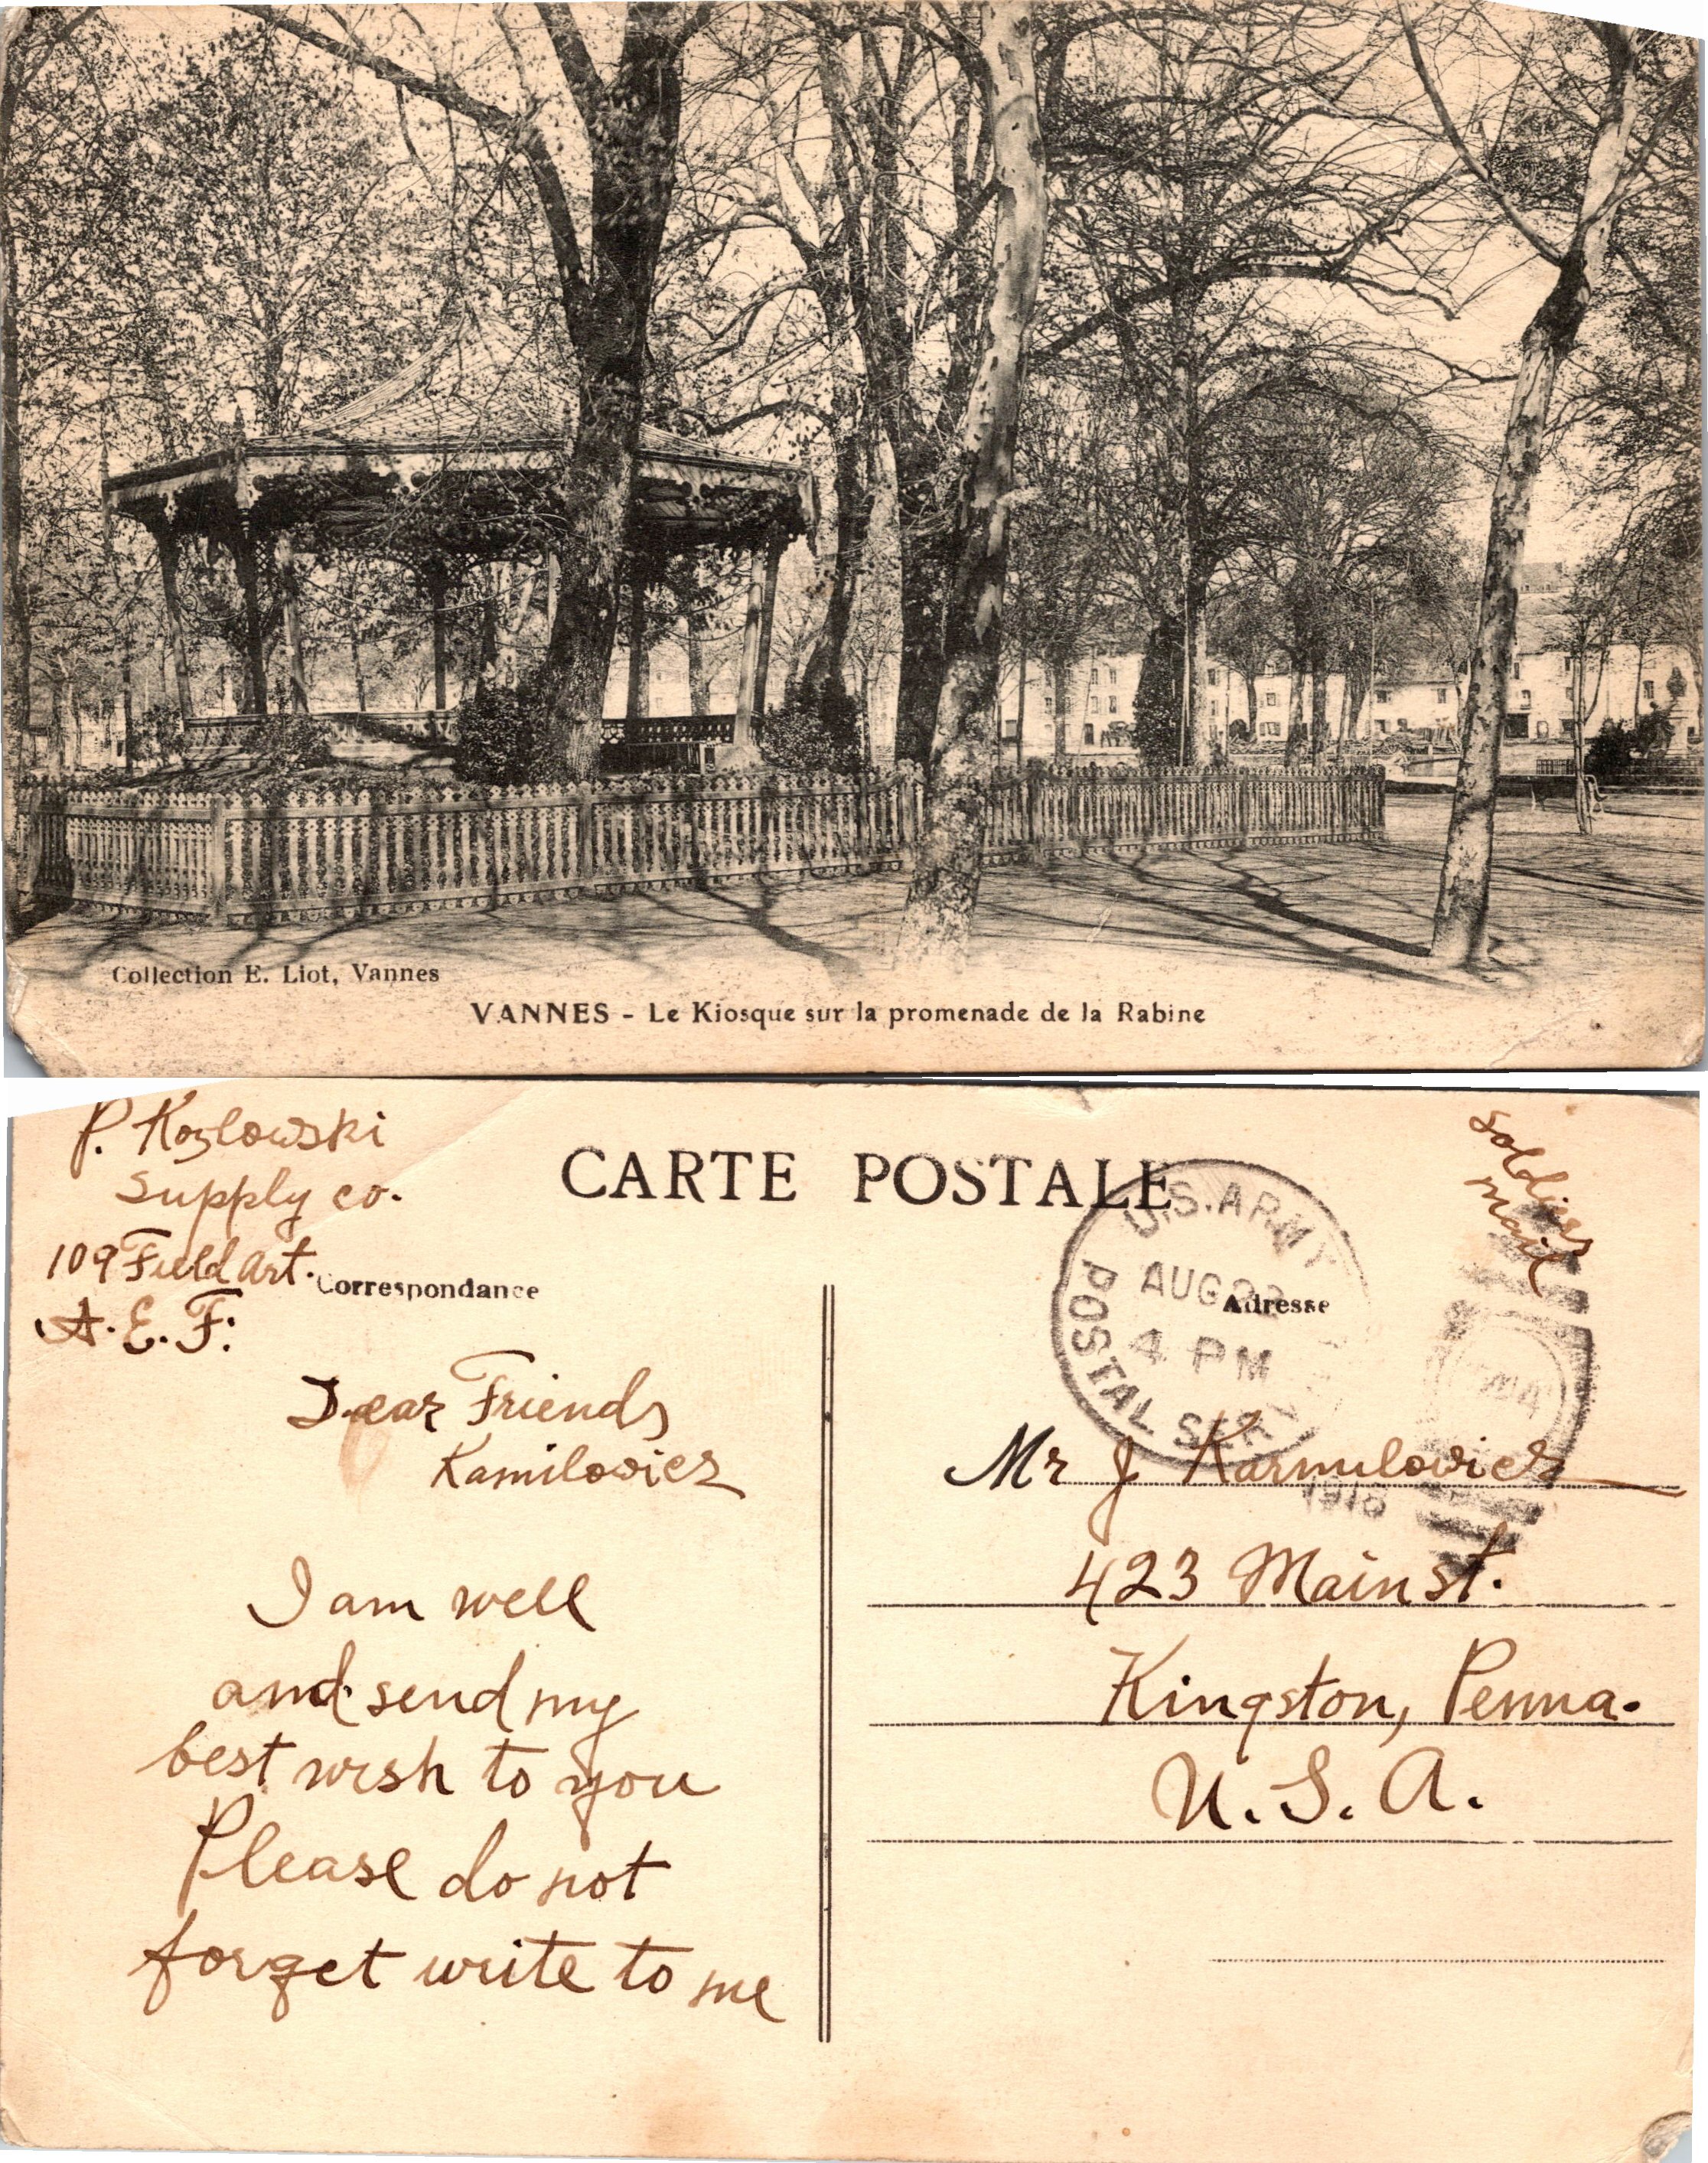 Collection E. Liot, Vannes
VANNES - Le Kiosque sur la promenade de la Rabine
P. Kozlowski
Supply co.
109 Field Art.
A. E. F.
CARTE POSTALE
Correspondance
Adresse
Soldiers
mail
U.S. ARMY
POSTAL SERV
AUG
4 PM
1918
Dear Friends
Kamilowicz
I am well
and send my
best wish to you
Please do not
forget write to me
Mr J Karmilowicz
423 Main st.
Kingston, Penna.
U. S. A.